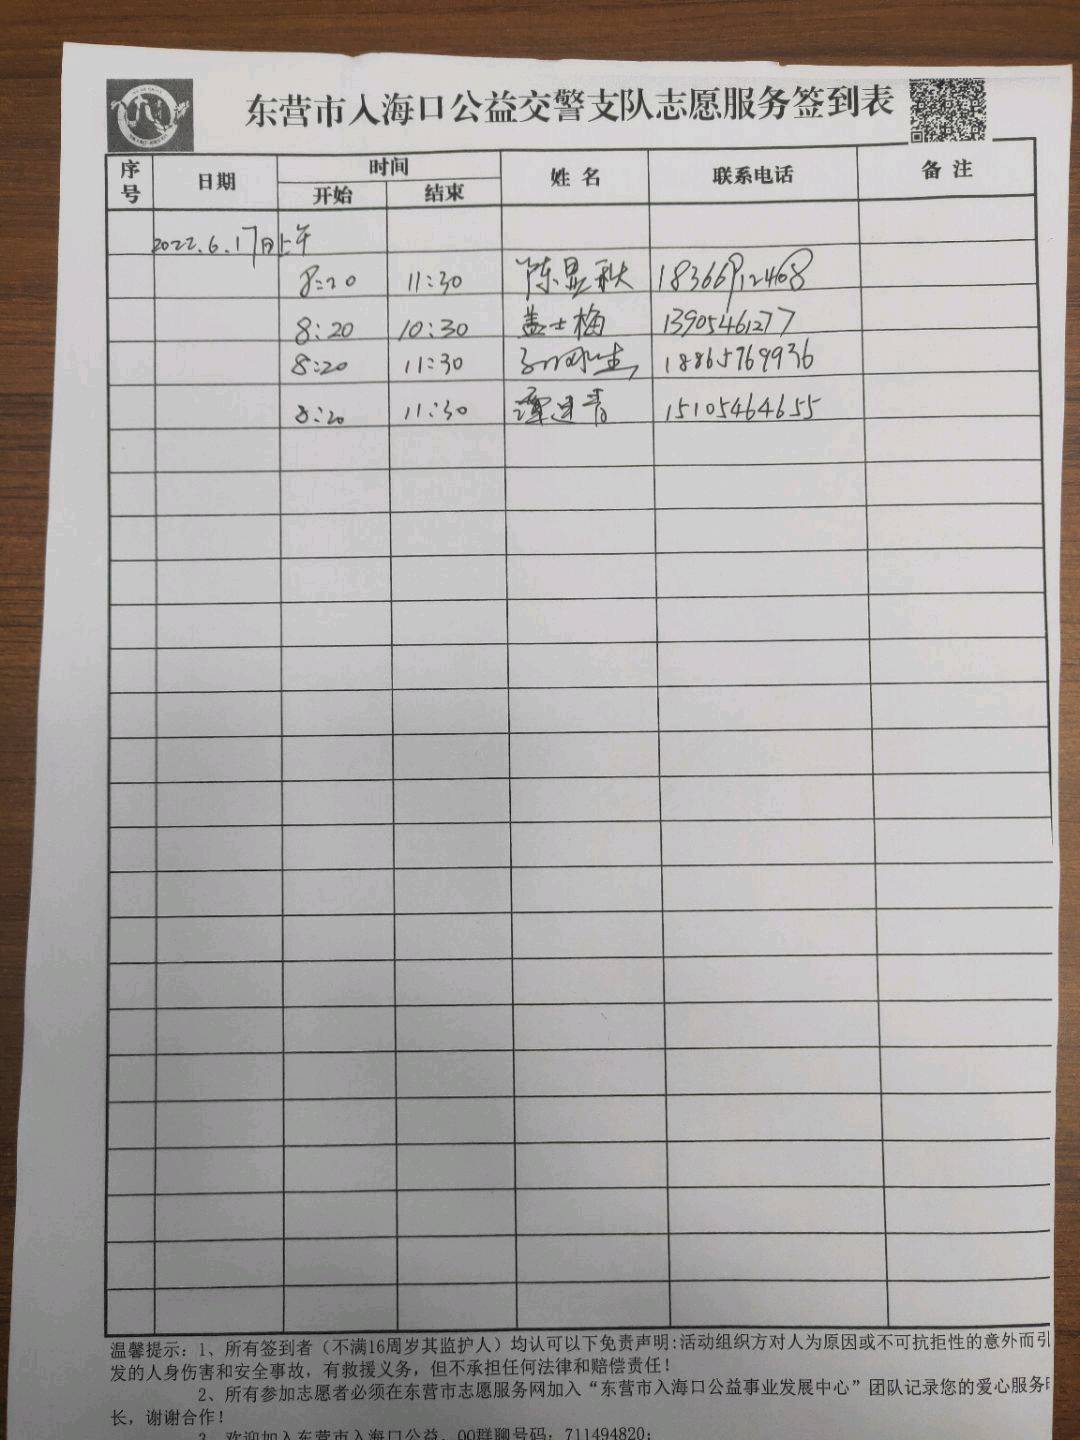 东营市入海口公益交警支队志愿服务签到表
序号 日期 时间 姓名 联系电话 备注
开始 结束
2022.6.17日上午
8:20 11:30 陈显秋 18366912468
8:20 10:30 盖士梅 13905461277
8:20 11:30 18865769936
8:20 11:30 青 15105464655
温馨提示:1、所有签到者(不满16周岁其监护人)均认可以下免责声明:活动组织方对人为原因或不可抗拒性的意外而引
发的人身伤害和安全事故,有救援义务,但不承担任何法律和赔偿责任!
2、所有参加志愿者必须在东营市志愿服务网加入“东营市入海口公益事业发展中心”团队记录您的爱心服务时
长,谢谢合作!
3、欢迎加入东营市入海口公益,QQ群聊号码:711494820;